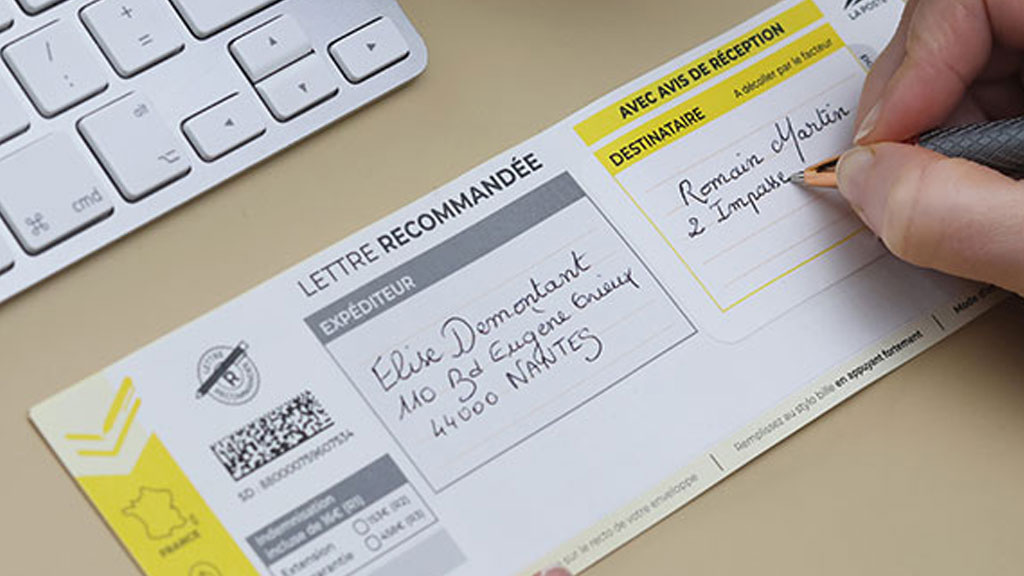 +
=
/
:
alt
⌥
⌘
cmd
LA POSTE
AVEC AVIS DE RÉCEPTION
DESTINATAIRE À décoller par le facteur
Romain Martin
2 Impasse
LETTRE RECOMMANDÉE
EXPÉDITEUR
Elise Demontant
110 Bd Eugène Orieux
44000 NANTES
LETTRE
R
SD :
Indemnisation
incluse de 16€ (R1)
Extension
garantie
153€ (R2)
458€ (R3)
FRANCE
sur le recto de votre enveloppe | Remplissez au stylo bille en appuyant fortement | Mode